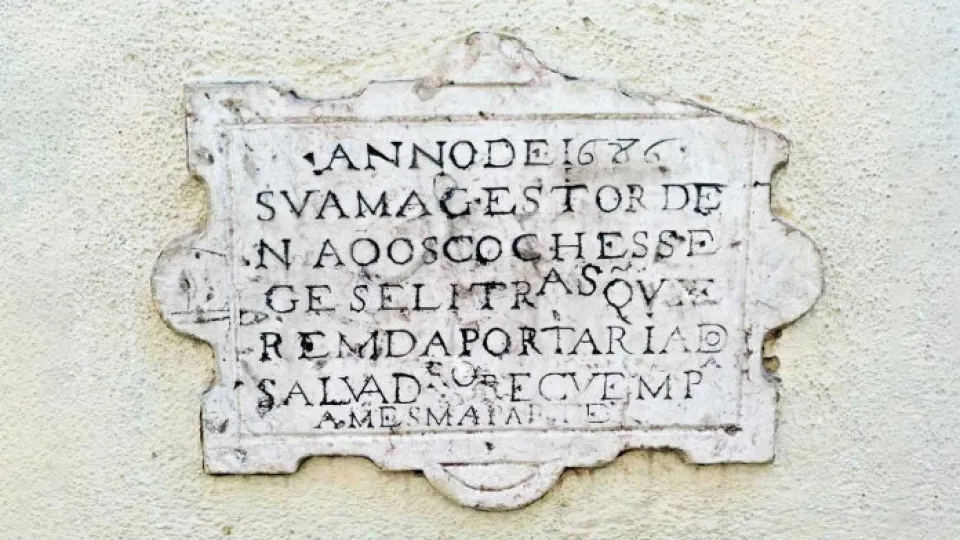 ANNO DE 1686
SVA MAGESTOR DE
NAO OS COCHES SE
GES E LITRAS QVE
REM DA PORTARIA DO
SALVADOR RECVEM P
A MESMA PARTE